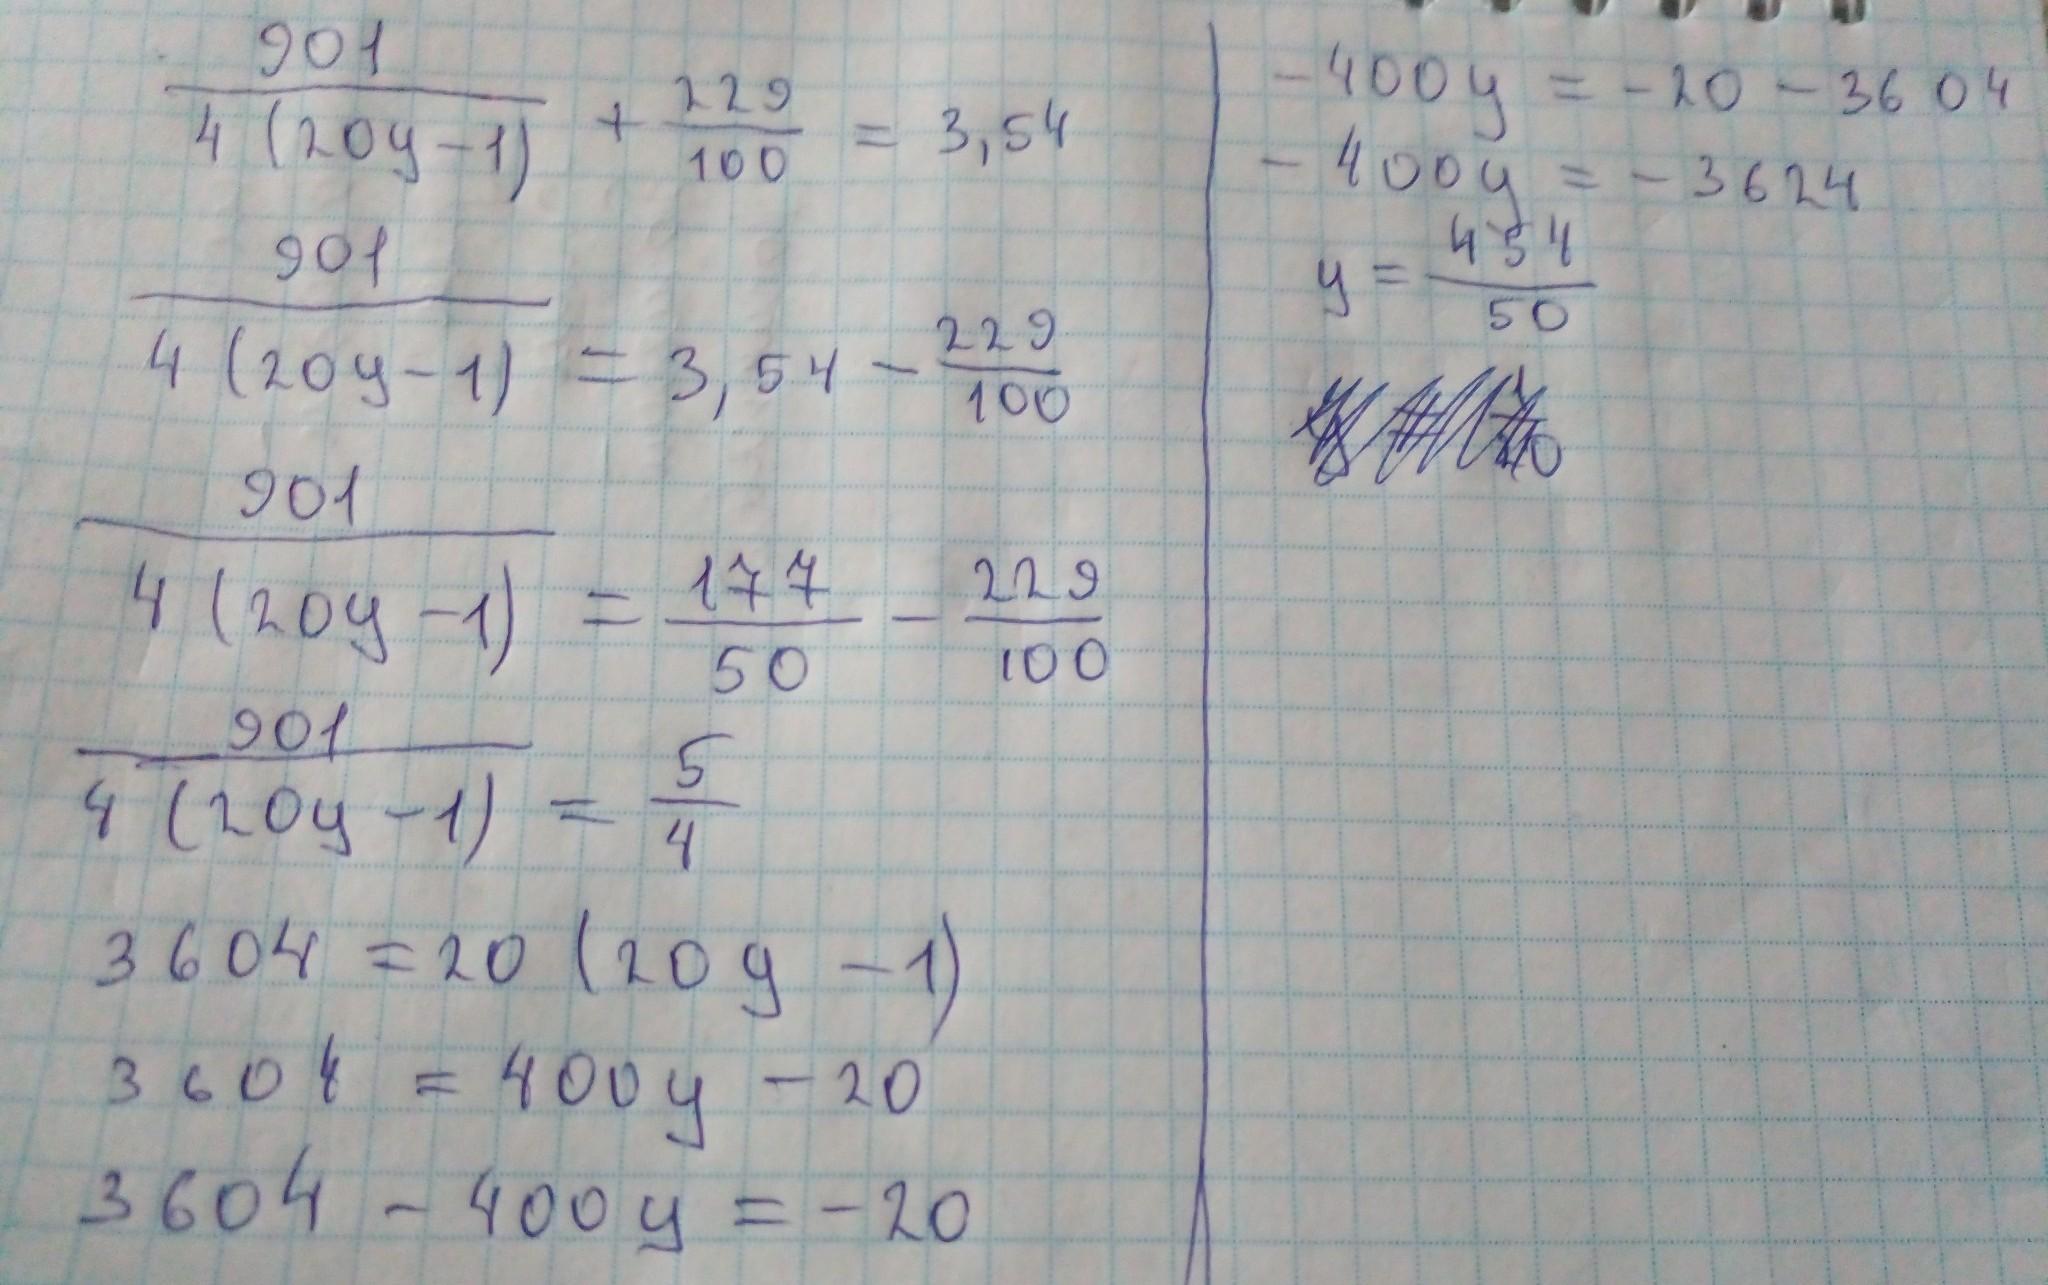 901/(4(20y-1)) + 229/100 = 3,54
901/(4(20y-1)) = 3,54 - 229/100
901/(4(20y-1)) = 177/50 - 229/100
901/(4(20y-1)) = 5/4
3604 = 20(20y-1)
3604 = 400y - 20
3604 - 400y = -20
-400y = -20 - 3604
-400y = -3624
y = 454/50